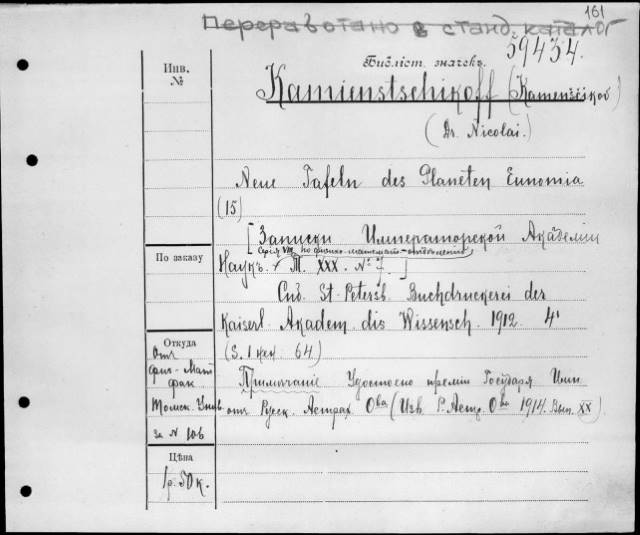 161
Переработано в станд. каталог
Библіот. значекъ.
59434.
Инв.
№
Kamienstschikoff (Kamenščikov)
(Dr. Nicolai.)
Neue Tafeln des Planeten Eunomia
(15)
[Записки Императорской Академіи
Серія VIII по физико-математ. отдѣленію
Наукъ. Т. XXX. № 7.]
По заказу
Спб. St. Petersb. Buchdruckerei der
Kaiserl. Akadem. dis Wissensch. 1912. 4°
(S. 1 нен. 64)
Откуда
отъ
физ-Мат
фак
Томск. Унив.
за № 106
Примѣчаніе Удостоено преміи Государя Имп.
отъ Русск. Астрон. О-ва (Изв. Р. Астр. О-ва 1914. Вып. XX)
Цѣна
1 р. 50 к.